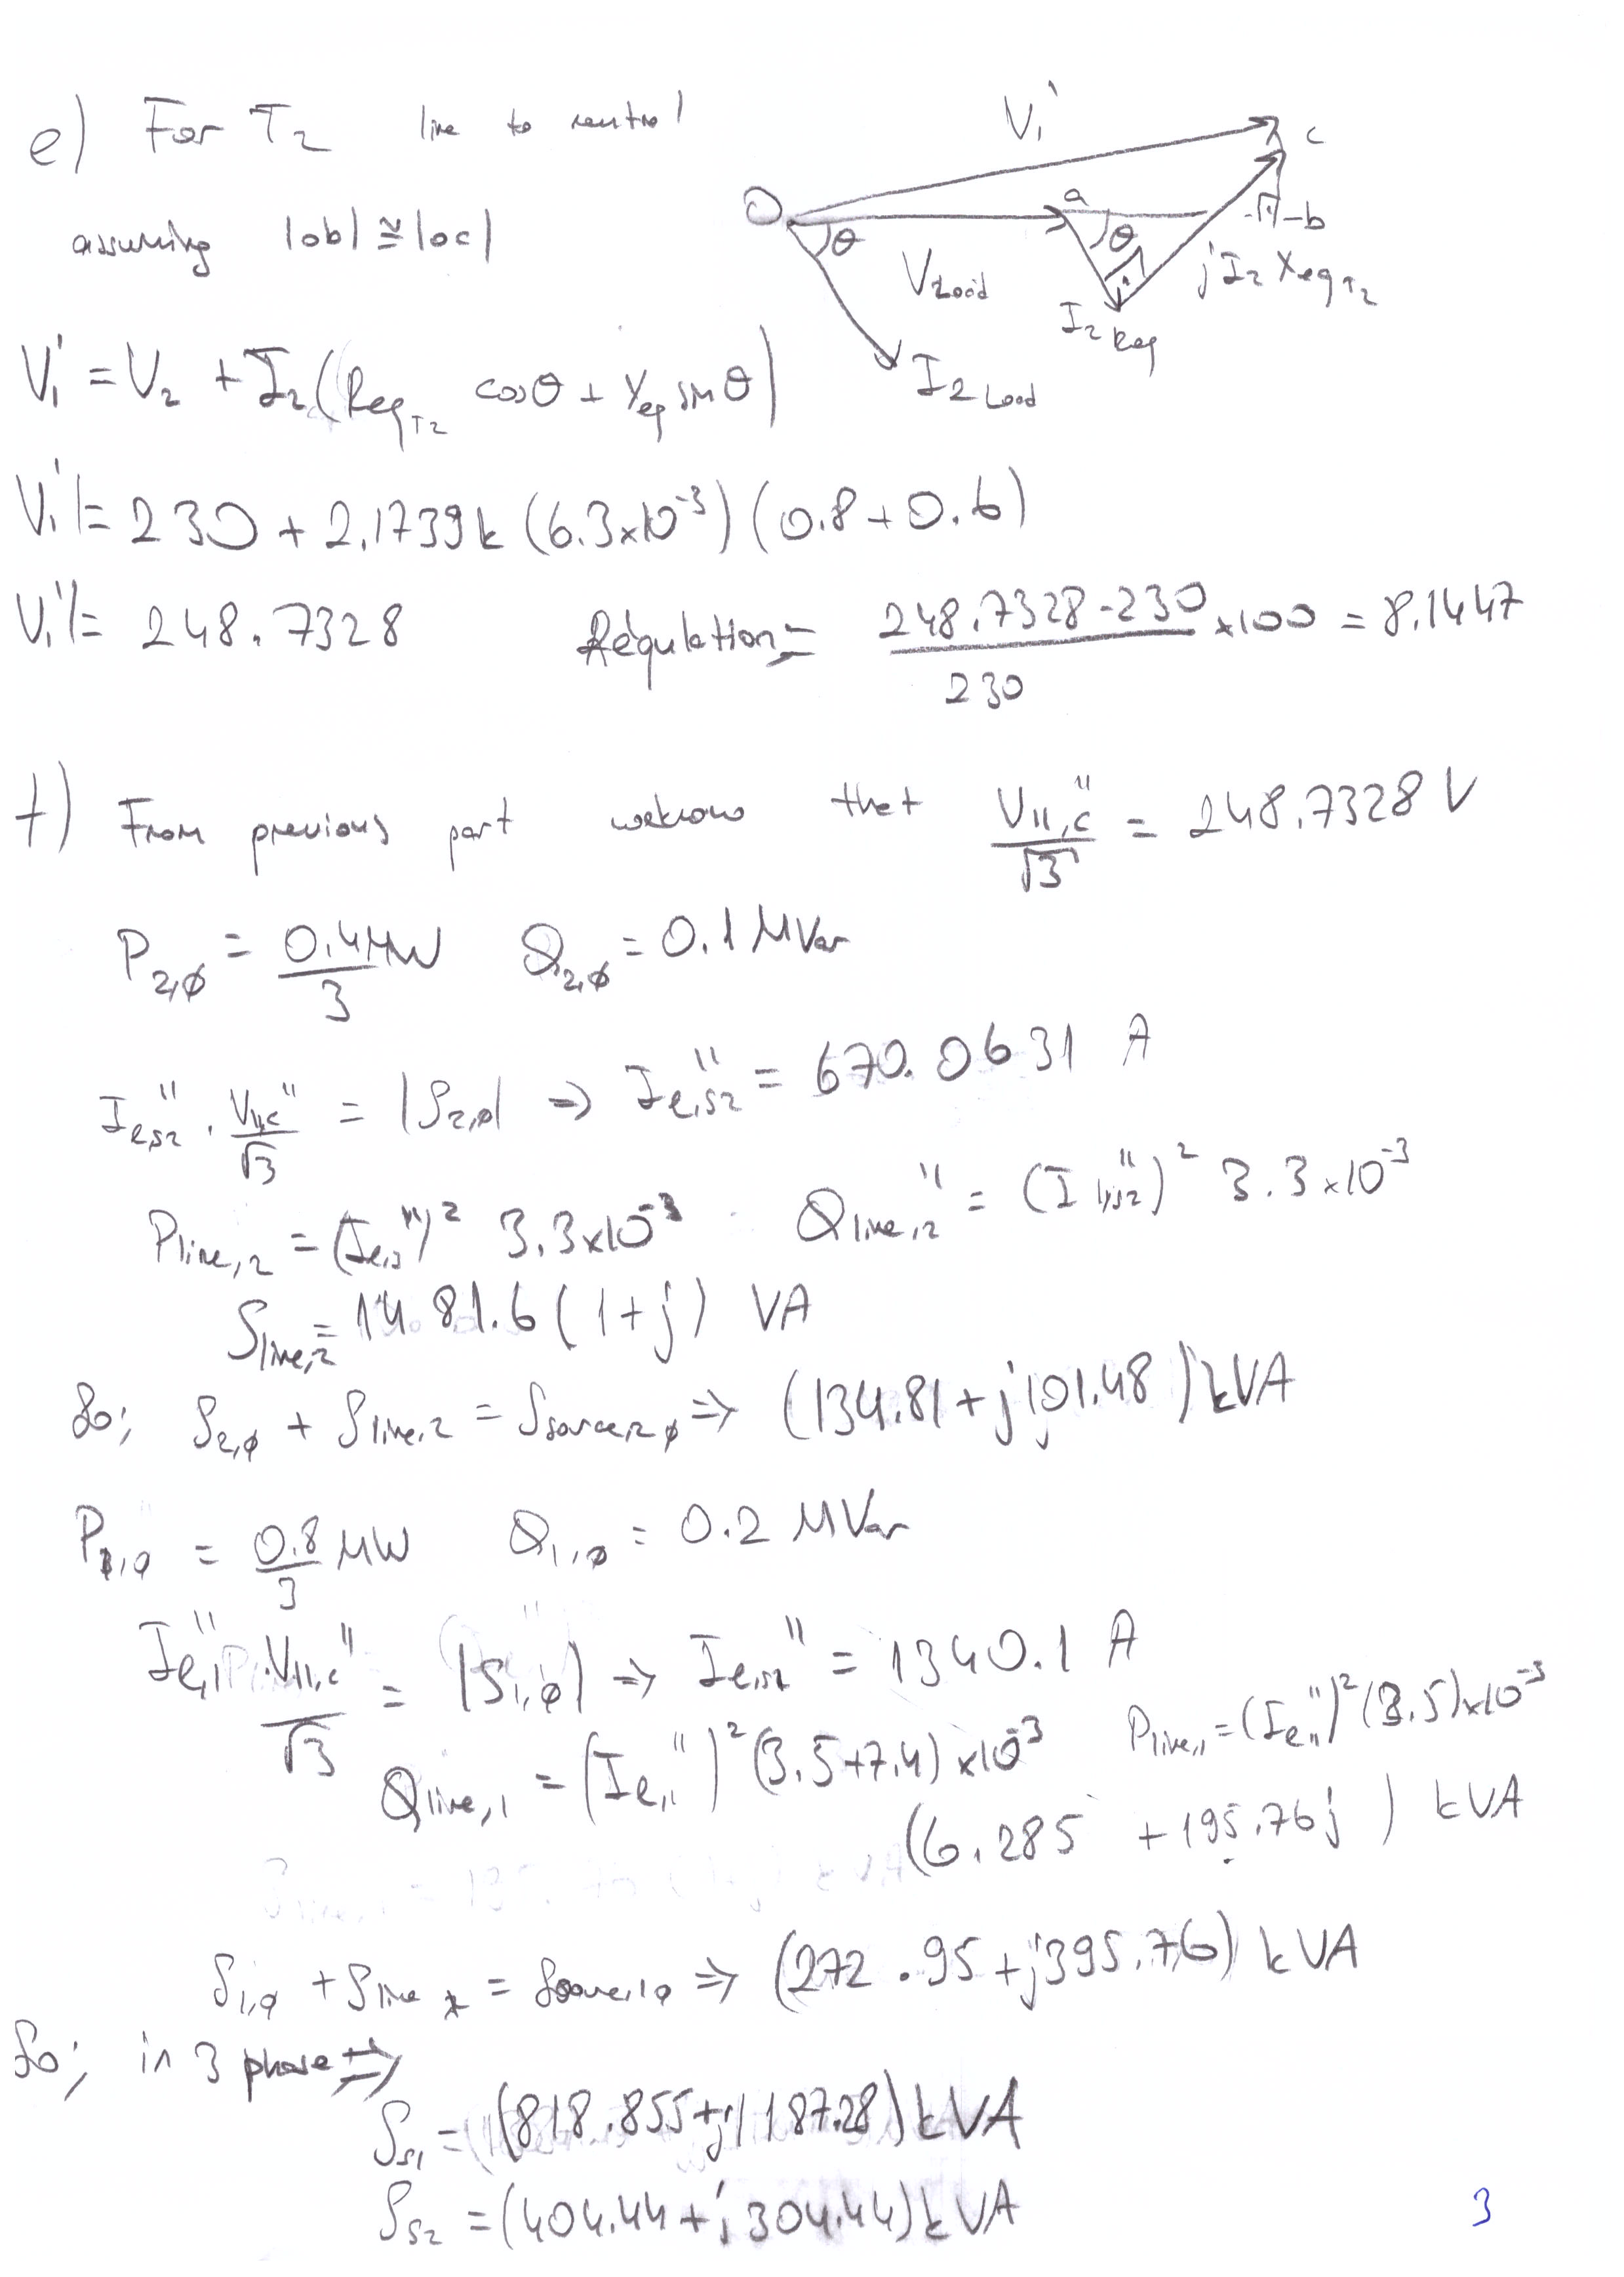 e) For T2 line to neutral
assuming |ob| ≅ |oc|
V1' O a c b θ θ VLoad I2Req jI2 XeqT2 I2Load
V1' = V2 + I2(ReqT2 cosθ + Xeq sinθ)
|V1'| = 230 + 2.1739k (6.3x10^-3) (0.8+0.6)
|V1'| = 248.7328 Regulation = (248.7328-230)/230 x100 = 8.1447
f) From previous part weknow that Vll,c''/√3 = 248.7328 V
P2,ϕ = 0.4MW/3 Q2,ϕ = 0.1 MVar
Ie,s2'' . Vll,c''/√3 = |S2,ϕ| => Ie,s2'' = 670.0631 A
Pline,2 = (Ie,2'')^2 3.3x10^-3 Qline,2'' = (Il,s2'')^2 3.3x10^-3
Sline,2 = 1481.6(1+j) VA
So; S2,ϕ + Sline,2 = Ssource,2ϕ => (134.81+j101.48)kVA
P1,ϕ = 0.8/3 MW Q1,ϕ = 0.2 MVar
Ie,1'' . Vll,c''/√3 = |S1,ϕ| => Ie,s2'' = 1340.1 A
Qline,1 = (Ie,1'')^2 (3.5+7.4)x10^-3 Pline,1 = (Ie,1'')^2 (3.5)x10^-3
(6.285 + 195.76j) kVA
S1,ϕ + Sline = Ssource,1ϕ => (272.95+j395.76) kVA
So; in 3 phase =>
Ss1 = (818.855+j1187.28)kVA
Ss2 = (404.44+j304.44)kVA
3